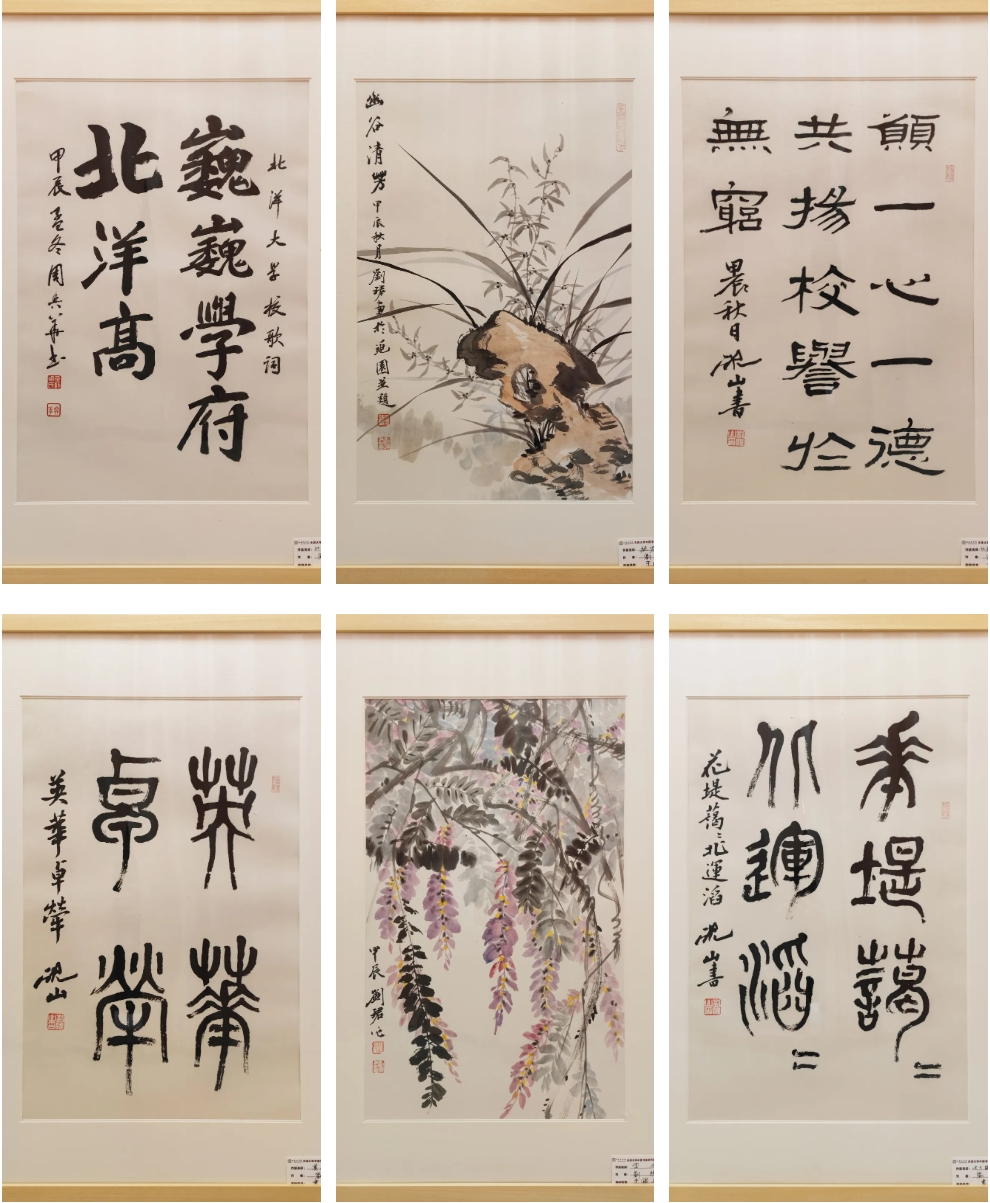 北洋大学校歌词
巍巍學府
北洋高
甲辰孟冬周吉華书
幽谷清芳
甲辰秋月劉珺畫於苑園並題
願一心一德
共揚校譽於
無窮
甲辰秋日
山書
英華
卓犖
英華卓犖
山
甲辰劉珺作
花堤藹〻
北運滔〻
花堤藹〻北運滔
山書